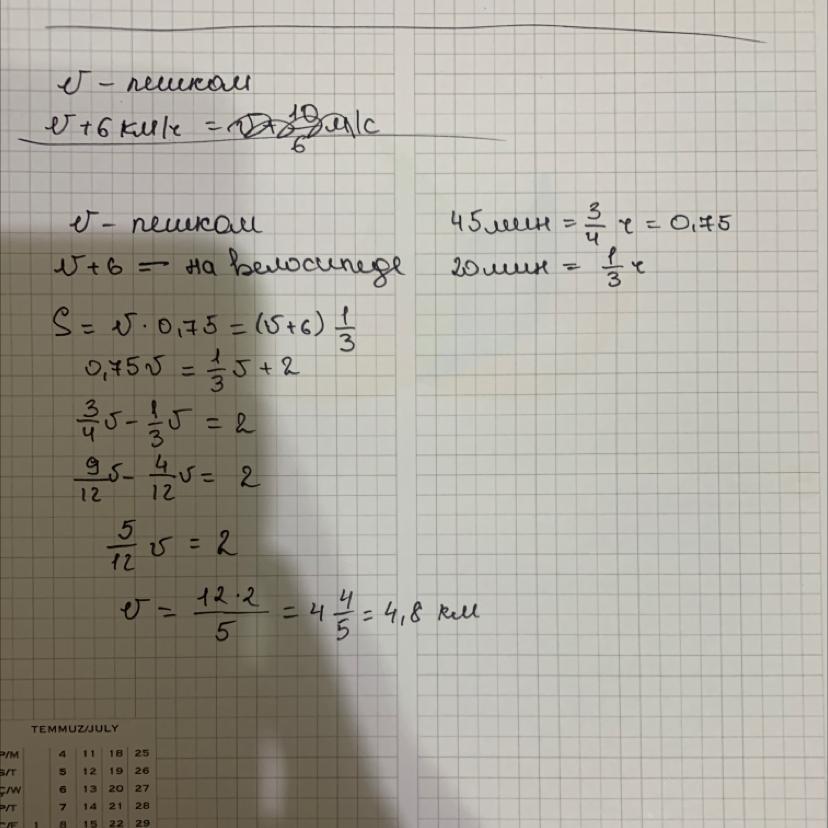 v - пешком
v + 6 км/ч = м/с
v - пешком
v + 6 — на велосипеде
45 мин = 3/4 ч = 0,75
20 мин = 1/3 ч
S = v · 0,75 = (v+6) 1/3
0,75 v = 1/3 v + 2
3/4 v - 1/3 v = 2
9/12 v - 4/12 v = 2
5/12 v = 2
v = 12·2/5 = 4 4/5 = 4,8 км
TEMMUZ/JULY
P/M 4 11 18 25
S/T 5 12 19 26
Ç/W 6 13 20 27
P/T 7 14 21 28
C/F 1 8 15 22 29